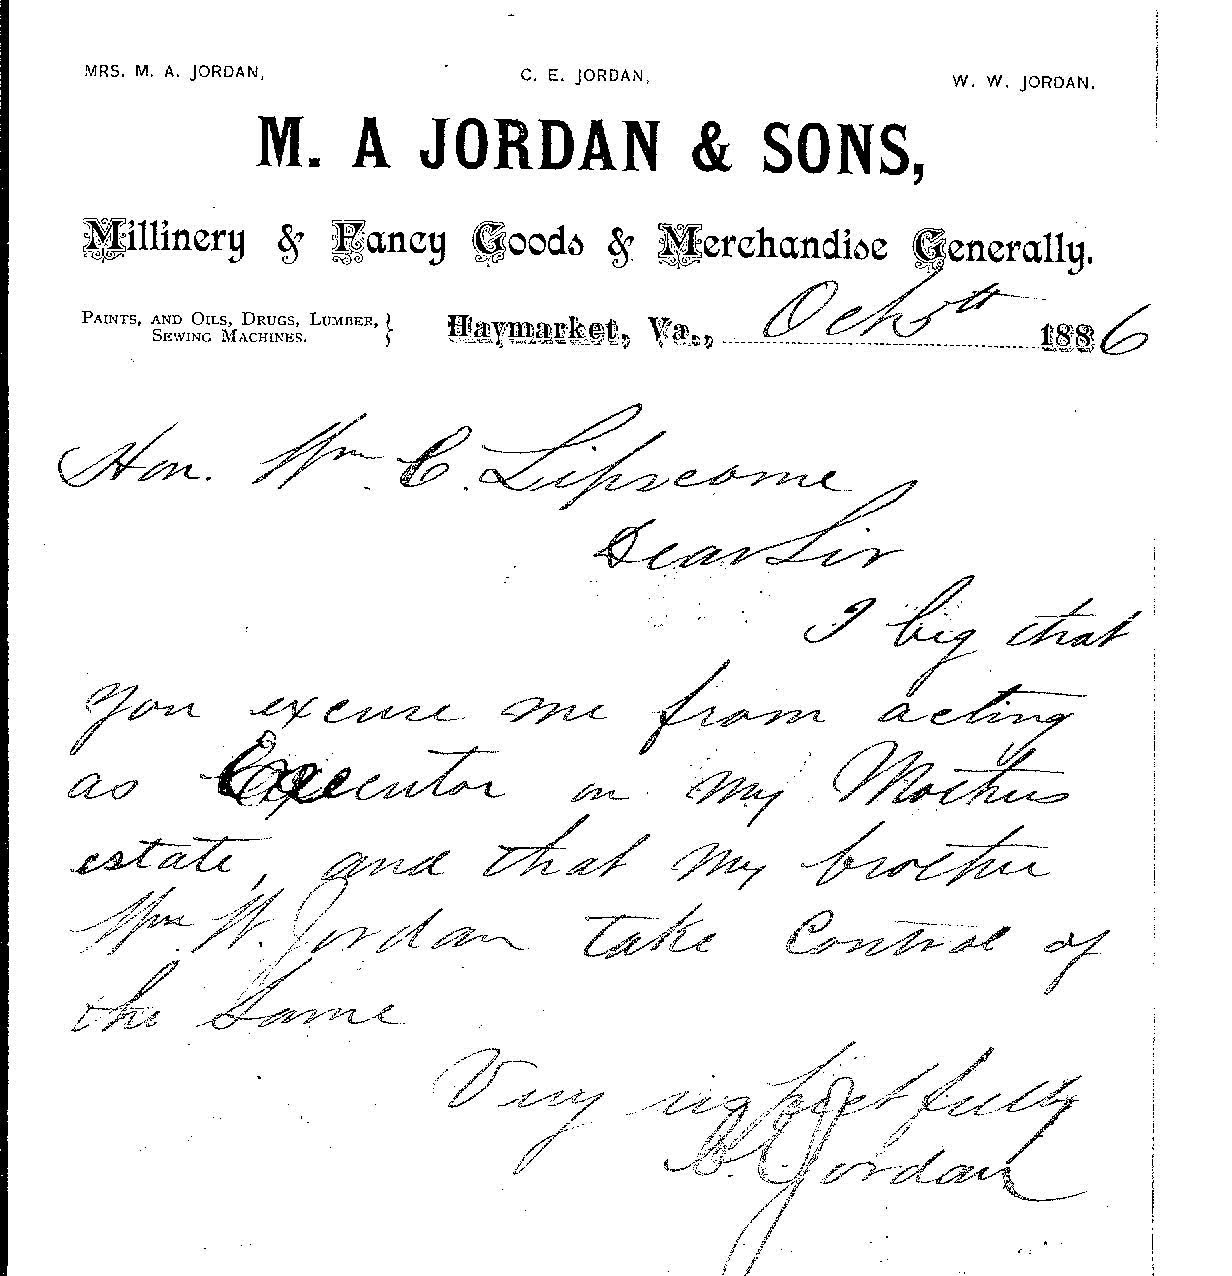 MRS. M. A. JORDAN, C. E. JORDAN, W. W. JORDAN.
M. A JORDAN & SONS,
Millinery & Fancy Goods & Merchandise Generally.
PAINTS, AND OILS, DRUGS, LUMBER, }
SEWING MACHINES.
Haymarket, Va., Oct 5th 1886
Hon. Wm. C. Lipscome
Dear Sir
I beg that
you excuse me from acting
as Executor on my Mothers
estate, and that my brother
Wm. W. Jordan take Control of
the same
Very respectfully
C. E. Jordan